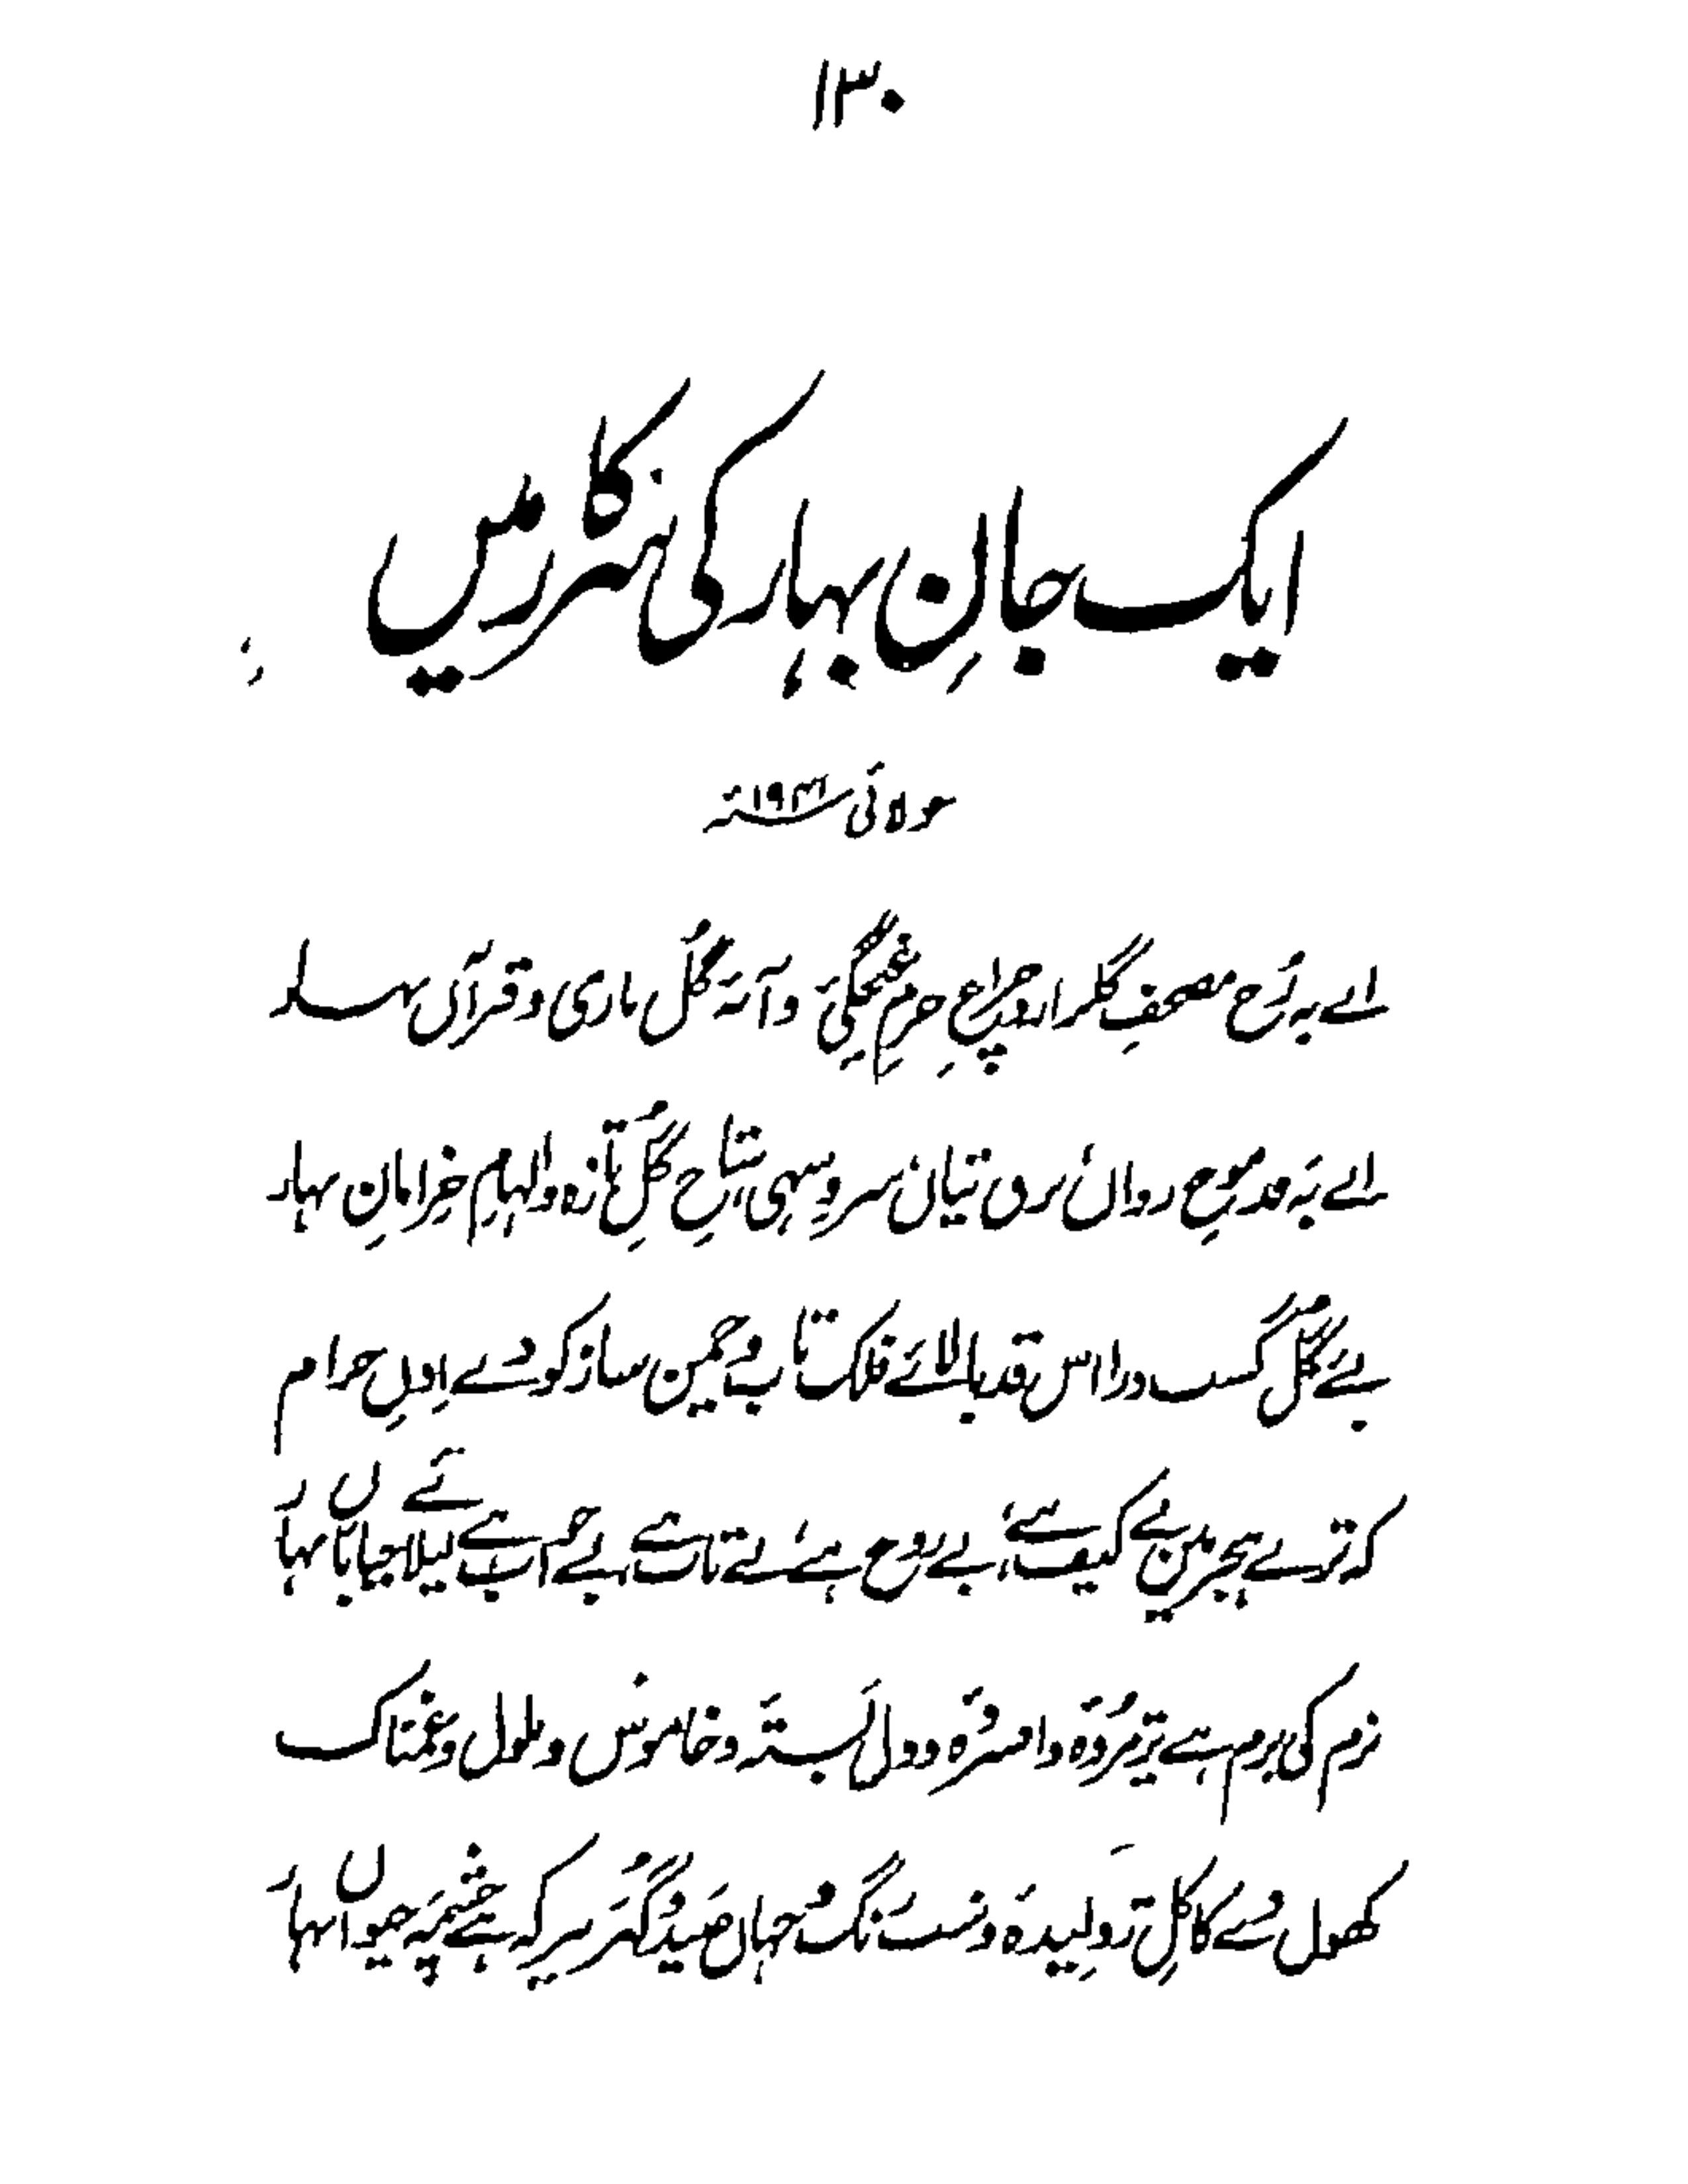 ۱۳۰
ایک جانِ بہار کی نذر میں
جولائی ۱۹۳۱ء
اے بہ رُخ مصحفِ گلزار و چراغِ حرمِ غنچگی و آیۂ گل باری و قرآنِ بہار
اے بہ قد موجِ رواں، برقِ تپاں، سروِ سہی، شاخِ گلِ تازہ و الہامِ خرامانِ بہار
بہرِ گل گشت ذرا اس قدِ بالائے فلک تاب و چمن ساز کو دے اذنِ خرام
کہ ترے ہجر میں بے کیف ہے، بے روح ہے، بے تاب ہے، اے لیلائے بہار
بزم کی بزم ہے پژمُردہ و افسردہ و دل بستہ و خاموش و ملول و غمناک
کھول دے کاکلِ ژولیدہ و شب رنگ و جہاں صید و گہر کہ ہے چشمۂ حیوانِ بہار